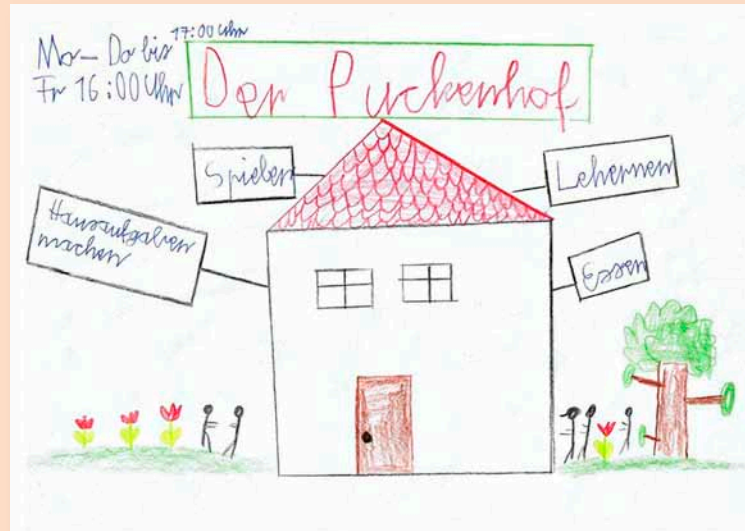 Mo – Do bis 17:00 Uhr
Fr 16:00 Uhr
Der Puckenhof
Spielen
Lehernen
Hausaufgaben
machen
Essen